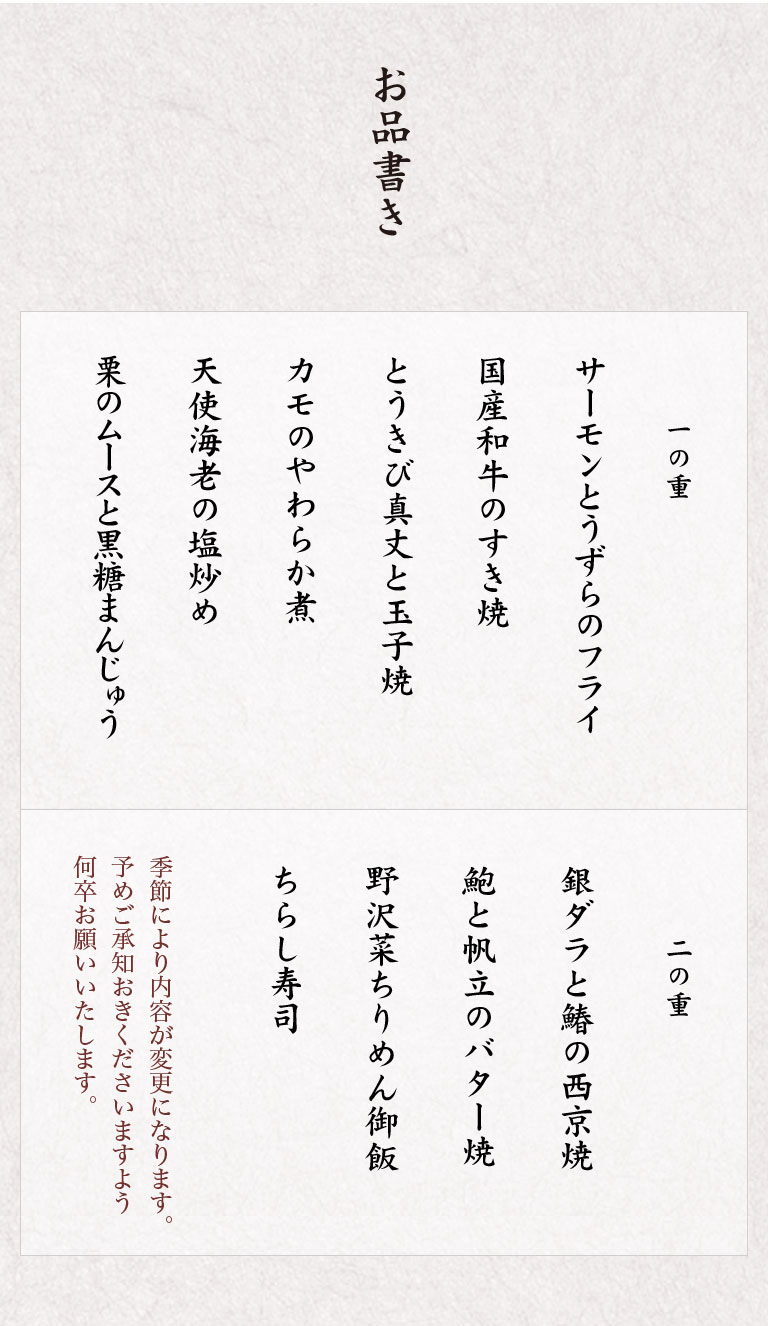 お品書き
一の重
サーモンとうずらのフライ
国産和牛のすき焼
とうきび真丈と玉子焼
カモのやわらか煮
天使海老の塩炒め
栗のムースと黒糖まんじゅう
二の重
銀ダラと鰆の西京焼
鮑と帆立のバター焼
野沢菜ちりめん御飯
ちらし寿司
季節により内容が変更になります。
予めご承知おきくださいますよう
何卒お願いいたします。